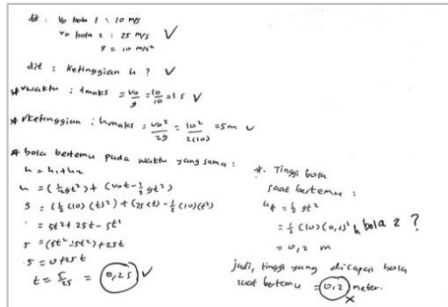 dik : Vo bola 1 : 10 m/s
vo bola 2 : 25 m/s ✓
g = 10 m/s²
dit : Ketinggian h ? ✓
* waktu ; tmaks = vo/g = 10/10 = 1 s ✓
* ketinggian ; hmaks = vo²/2g = 10²/2(10) = 5m ✓
* bola bertemu pada waktu yang sama :
h = h1 + h2
h = (½gt²) + (vot - ½gt²)
5 = (½ (10) (t)²) + (25 (t) - ½ (10) (t²)
= 5t² + 25t - 5t²
5 = (5t² - 5t²) + 25t
5 = 0 + 25t
t = 5/25 = 0,25 ✓
*. Tinggi bola
saat bertemu :
= ½ gt²
= ½ (10) (0,2)² h bola 2 ?
= 0,2 m
jadi, tinggi yang dicapai bola
saat bertemu = 0,2 meter.
×